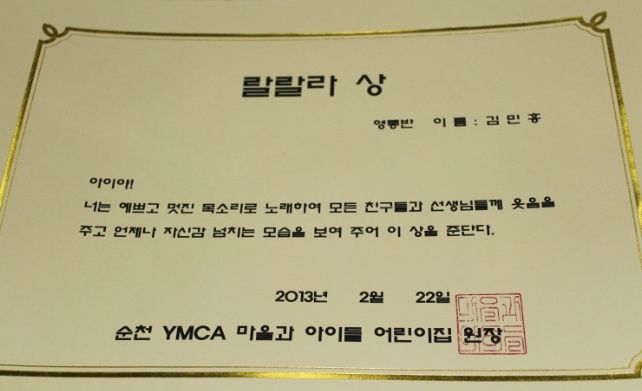 랄랄라 상
영롱반 이름 : 김민홍
아이야!
너는 예쁘고 멋진 목소리로 노래하여 모든 친구들과 선생님들께 웃음을
주고 언제나 자신감 넘치는 모습을 보여 주어 이 상을 준단다.
2013년 2월 22일
순천 YMCA 마을과 아이들 어린이집 원장